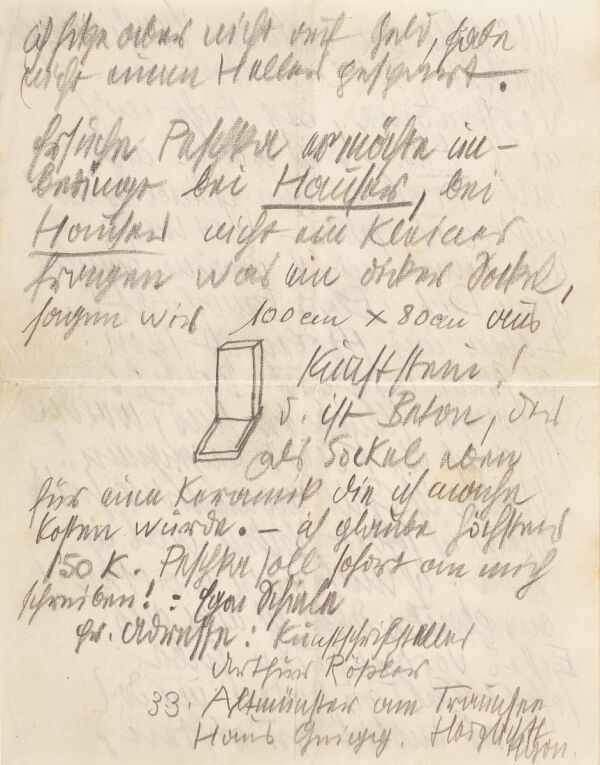 ich sitze aber nicht auf Geld, habe
nicht einen Heller gespart.
Ersuche Peschka er möchte un-
bedingt bei Hauser, bei
Hauser nicht ein kleiner
fragen was ein dicker Sockel,
sagen wir 100 cm × 80 cm aus
Kunststein!
d. ist Beton, der
als Sockel eben
für eine Keramik die ich mache
kosten würde. – ich glaube höchstens
150 K. Peschka soll sofort an mich
schreiben! : Egon Schiele
pr. Adresse: Kunstschriftsteller
Arthur Rößler
33. Altmünster am Traunsee
Haus Gaigg. Herzlichst
Egon.